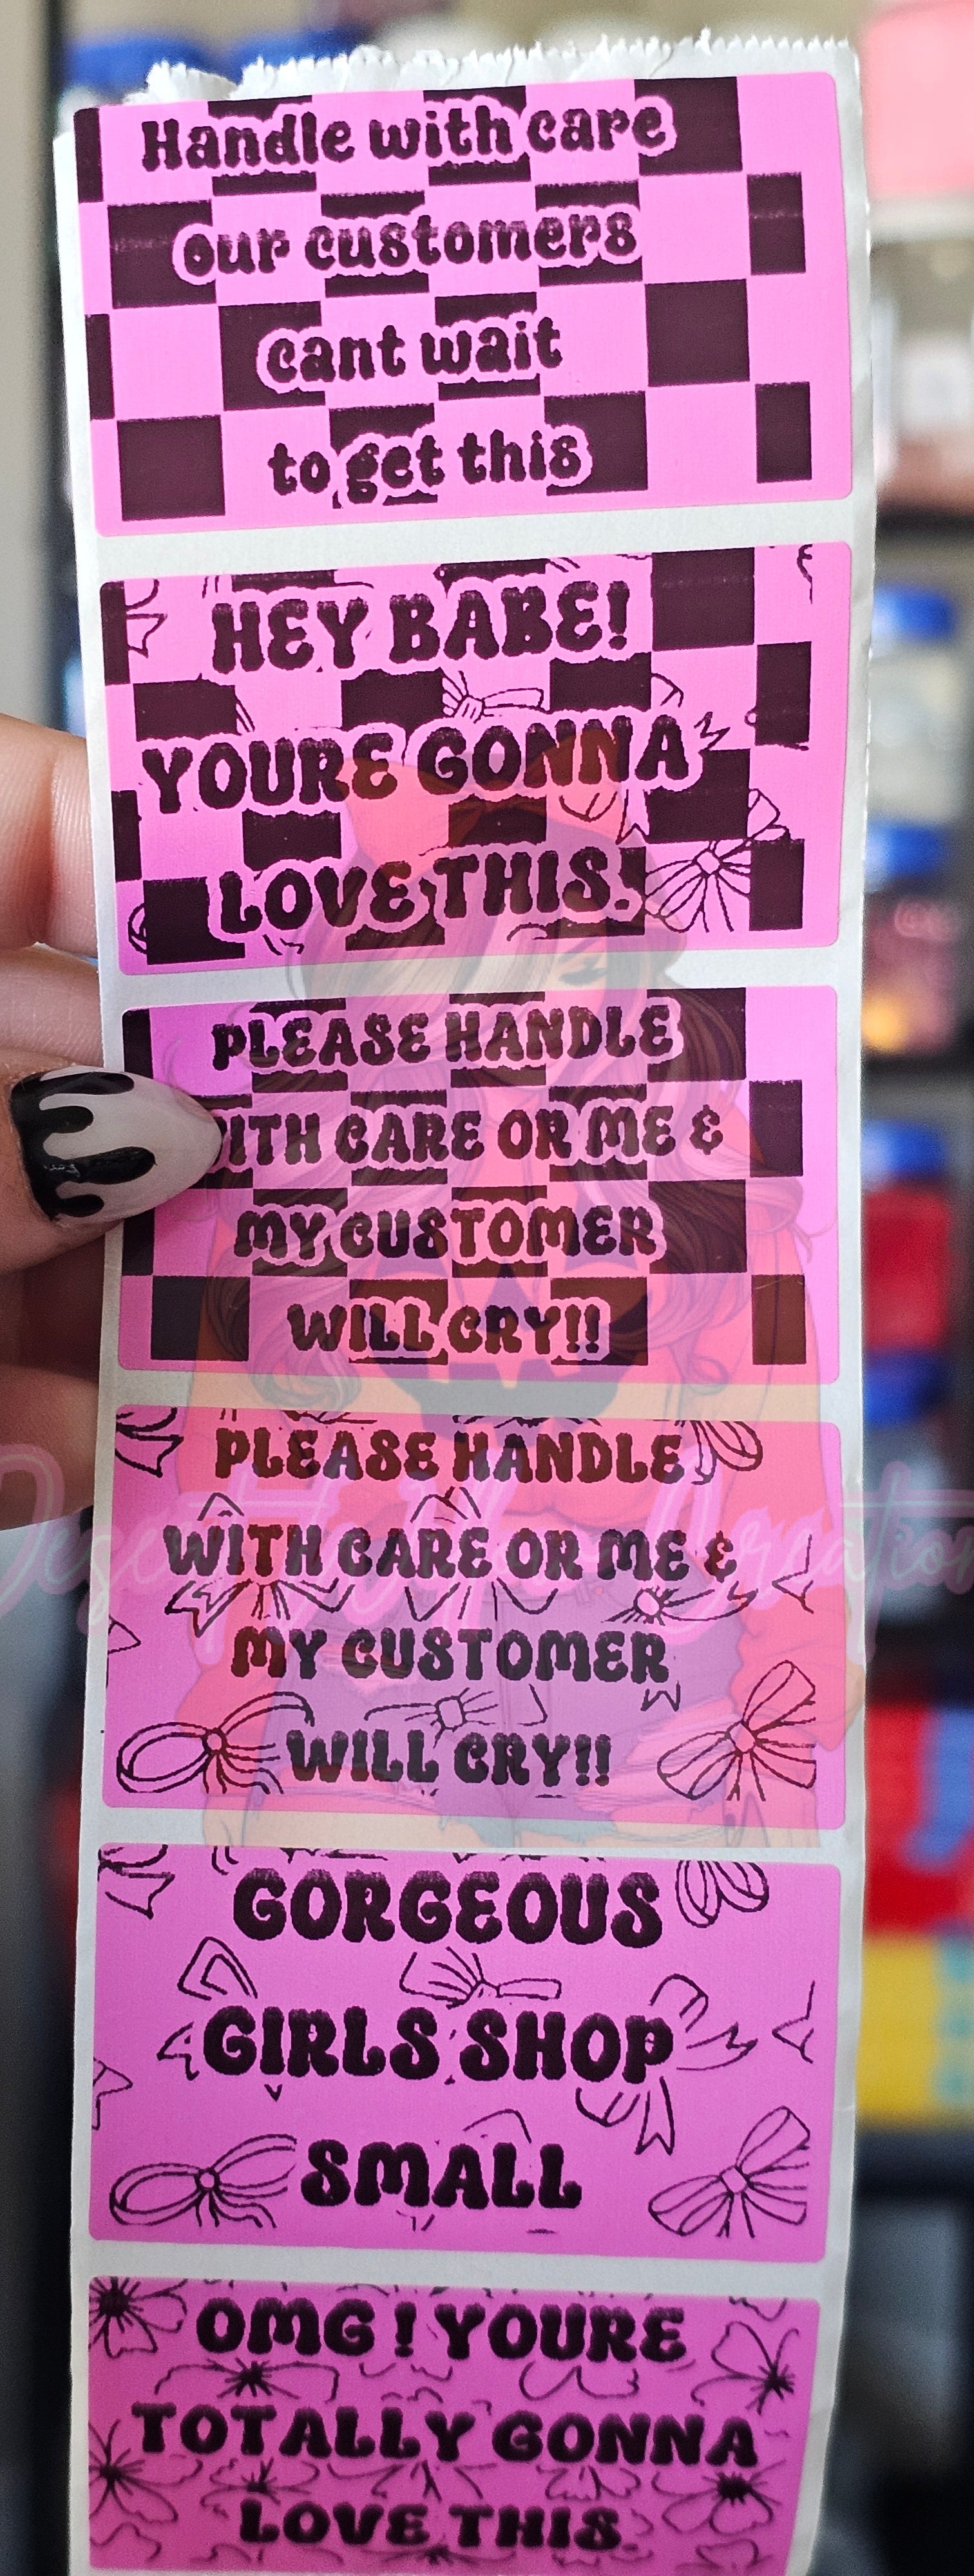 Handle with care
our customers
cant wait
to get this
HEY BABE!
YOURE GONNA
LOVE THIS!
PLEASE HANDLE
WITH CARE OR ME &
MY CUSTOMER
WILL CRY!!
PLEASE HANDLE
WITH CARE OR ME &
MY CUSTOMER
WILL CRY!!
GORGEOUS
GIRLS SHOP
SMALL
OMG! YOURE
TOTALLY GONNA
LOVE THIS